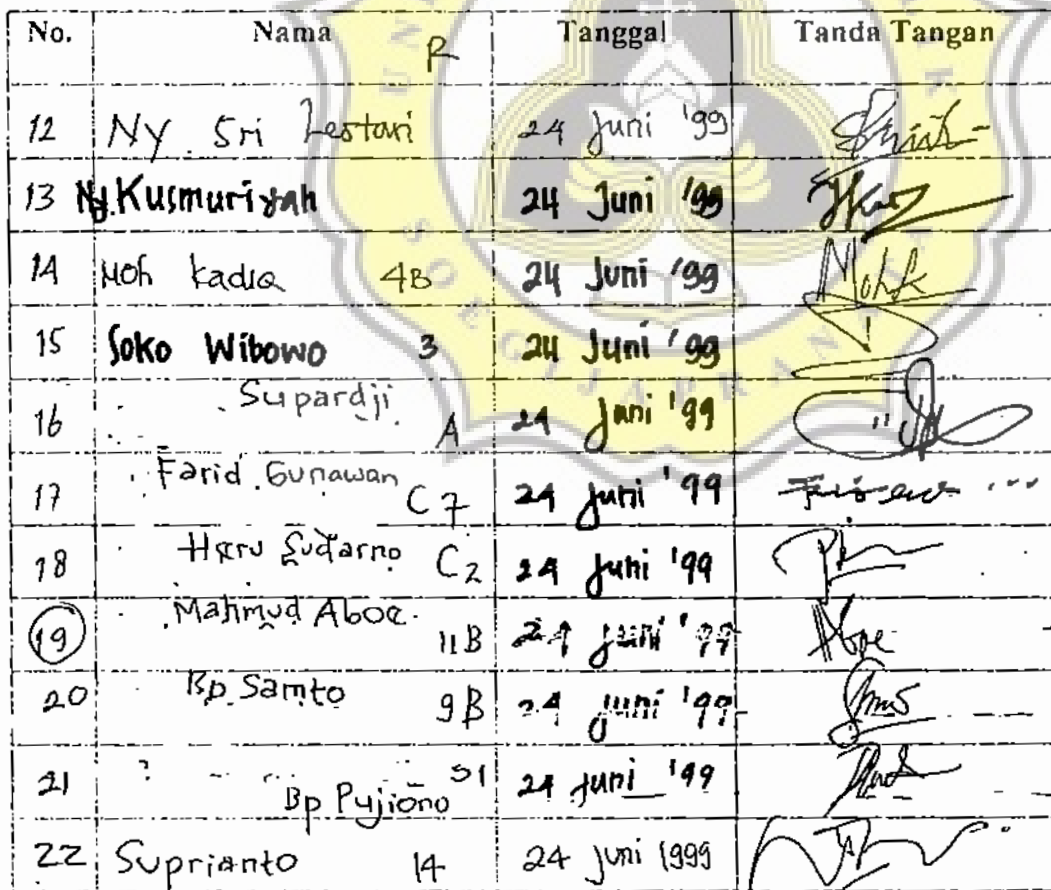 No. Nama R Tanggal Tanda Tangan
12 NY. Sri Lestari 24 Juni '99
13 Ny. Kusmuriyah 24 Juni '99
14 Moh Kadiq 4B 24 Juni '99 Mohk
15 Soko Wibowo 3 24 Juni '99
16 Supardji A 24 Juni '99
17 Farid Gunawan C7 24 Juni '99
18 Heru Sudarno C2 24 Juni '99
19 Mahmud Aboe 11B 24 Juni '99 Aboe
20 Bp Samto 9B 24 Juni '99
21 Bp Pujiono 24 Juni '99
22 Suprianto 14 24 Juni 1999
SOEGIJAPRANATA